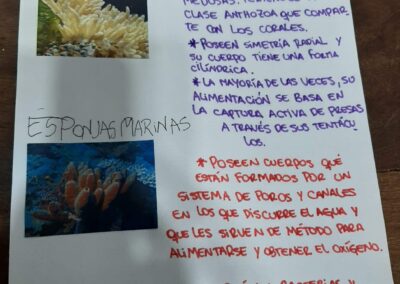 CLASE ANTHOZOA QUE COMPAR
TE CON LOS CORALES.
* POSEEN SIMETRÍA RADIAL Y
SU CUERPO TIENE UNA FORMA
CILÍNDRICA.
* LA MAYORÍA DE LAS VECES, SU
ALIMENTACIÓN SE BASA EN
LA CAPTURA ACTIVA DE PRESAS
A TRAVÉS DE SUS TENTÁCU
LOS.
ESPONJAS MARINAS
* POSEEN CUERPOS QUÉ
ESTÁN FORMADOS POR UN
SISTEMA DE POROS Y CANALES
EN LOS QUE DISCURRE EL AGUA Y
QUE LES SIRVEN DE MÉTODO PARA
ALIMENTARSE Y OBTENER EL OXÍGENO.